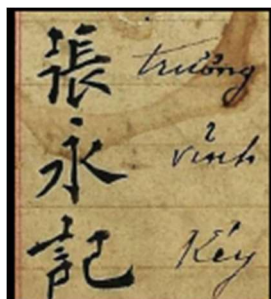 張 trương
永 vĩnh
記 Ký